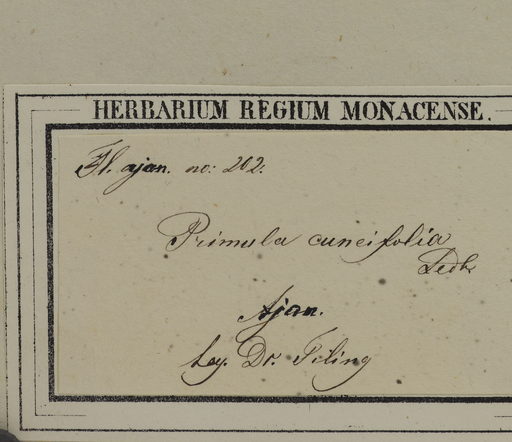 HERBARIUM REGIUM MONACENSE.
Fl. ajan. no: 202.
Primula cuneifolia
Ledb
Ajan.
leg. Dr. Tiling